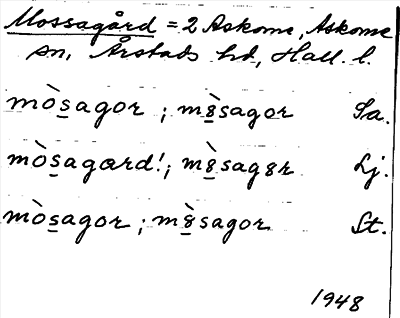 Mossagård = 2 Askome, Askome
sn, Årstads hd, Hall. l.
mòs̲agor ; mò̲sagor Sa.
mòs̲agard! ; mò̲sagər Lj.
mòs̲agor ; mò̲sagor St.
1948